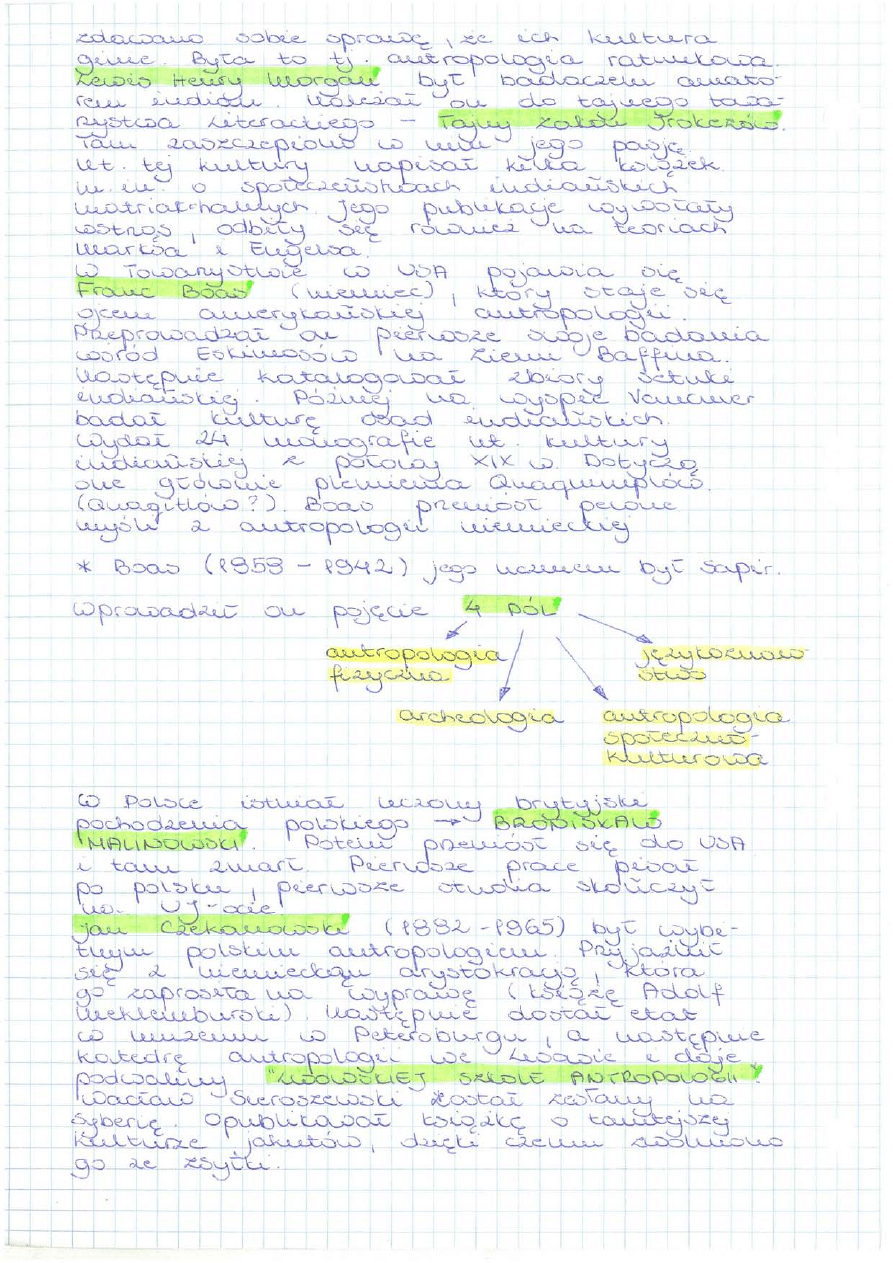 zdawano sobie sprawę, że ich kultura
ginie. Była to tj. antropologia ratunkowa.
Lewis Henry Morgan był badaczem amato-
rem indian. Należał on do tajnego towa-
rzystwa Literackiego - Tajny Zakon Irokezów.
Tam zaszczepiono w nim jego pasję.
Nt. tej kultury napisał kilka książek
m.in. o społeczeństwach indiańskich
matriarchalnych. Jego publikacje wywołały
wstrząs, odbiły się również na teoriach
Marksa i Engelsa.
W Towarzystwie w USA pojawia się
Franc Boas (niemiec), który staje się
ojcem amerykańskiej antropologii.
Przeprowadzał on pierwsze swoje badania
wśród Eskimosów na Ziemi Baffina.
Następnie katalogował zbiory sztuki
indiańskiej. Później na wyspie Vancuver
badał kulturę osad indiańskich.
Wydał 24 monografie nt. kultury
indiańskiej z połowy XIX w. Dotyczą
one głównie plemienia
(Quagitlów?). Boas przeniósł pewne
myśli z antropologii niemieckiej
* Boas (1858 - 1942) jego uczniem był Sapir.
Wprowadził on pojęcie 4 PÓL
antropologia językoznaw-
fizyczna stwo
archeologia antropologia
społeczno-
kulturowa
W Polsce istniał uczony brytyjski
pochodzenia polskiego → BRONISŁAW
MALINOWSKI. Potem przeniósł się do USA
i tam zmarł. Pierwsze prace pisał
po polsku, pierwsze studia skończył
na UJ-ocie
Jan Czekanowski (1882 - 1965) był wybi-
tnym polskim antropologiem. Przyjaźnił
się z niemiecką arystokracją, która
go zaprosiła na wyprawę (książę Adolf
Meklemburski). Następnie dostał etat
w muzeum w Petersburgu, a następnie
katedrę antropologii we Lwowie i daje
podwaliny "LWOWSKIEJ SZKOLE ANTROPOLOGII".
Wacław Sieroszewski został zesłany na
Syberię. Opublikował książkę o tamtejszej
kulturze jakutów, dzięki czemu zwolniono
go ze zsyłki.